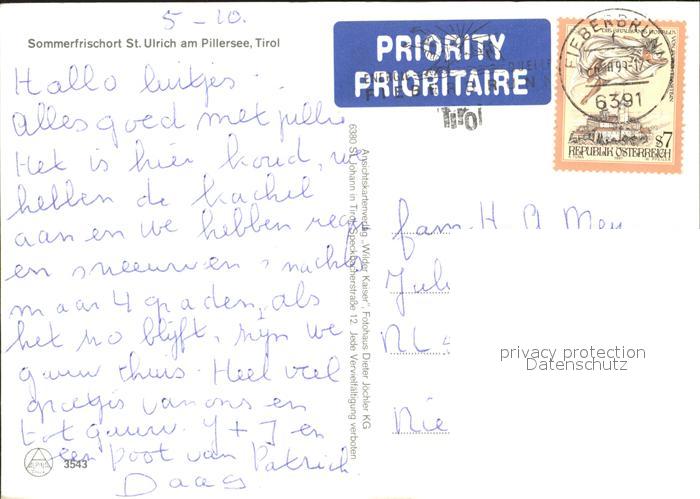 5-10.
Sommerfrischort St. Ulrich am Pillersee, Tirol
Hallo luitjes.
Alles goed met jullie
Het is hier koud, we
hebben de kachel
aan en we hebben regen
en sneeuw en 's nachts
maar 4 graden, als
het zo blijft, zijn we
gauw thuis. Heel veel
groetjes van ons en
tot gauw. Y + J en
een poot van Patrick.
Daag
3543
PRIORITY
PRIORITAIRE
Tirol
FIEBERBRUNN
6391
s7
REPUBLIK ÖSTERREICH
Ansichtskartenverlag „Wilder Kaiser", Fotohaus Dieter Jöchler KG
6380 St. Johann in Tirol, Speckbacherstraße 12. Jede Vervielfältigung verboten
fam. H. A. Mey
Juli
NL
Nie
privacy protection
Datenschutz